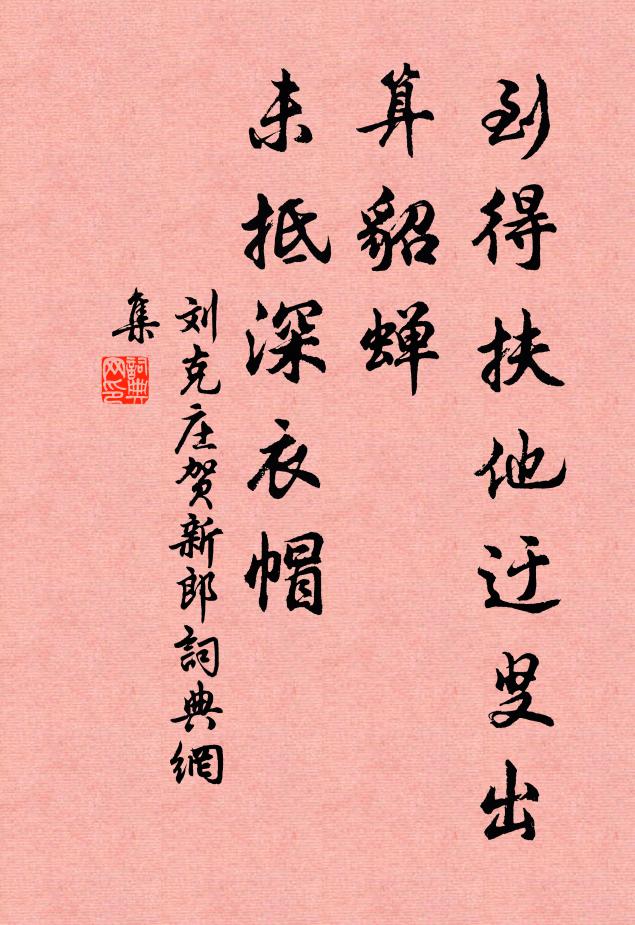 到得扶他迂叟出
算貂蝉
未抵深衣帽
刘克庄贺新郎詞典網
集
詞典
网印